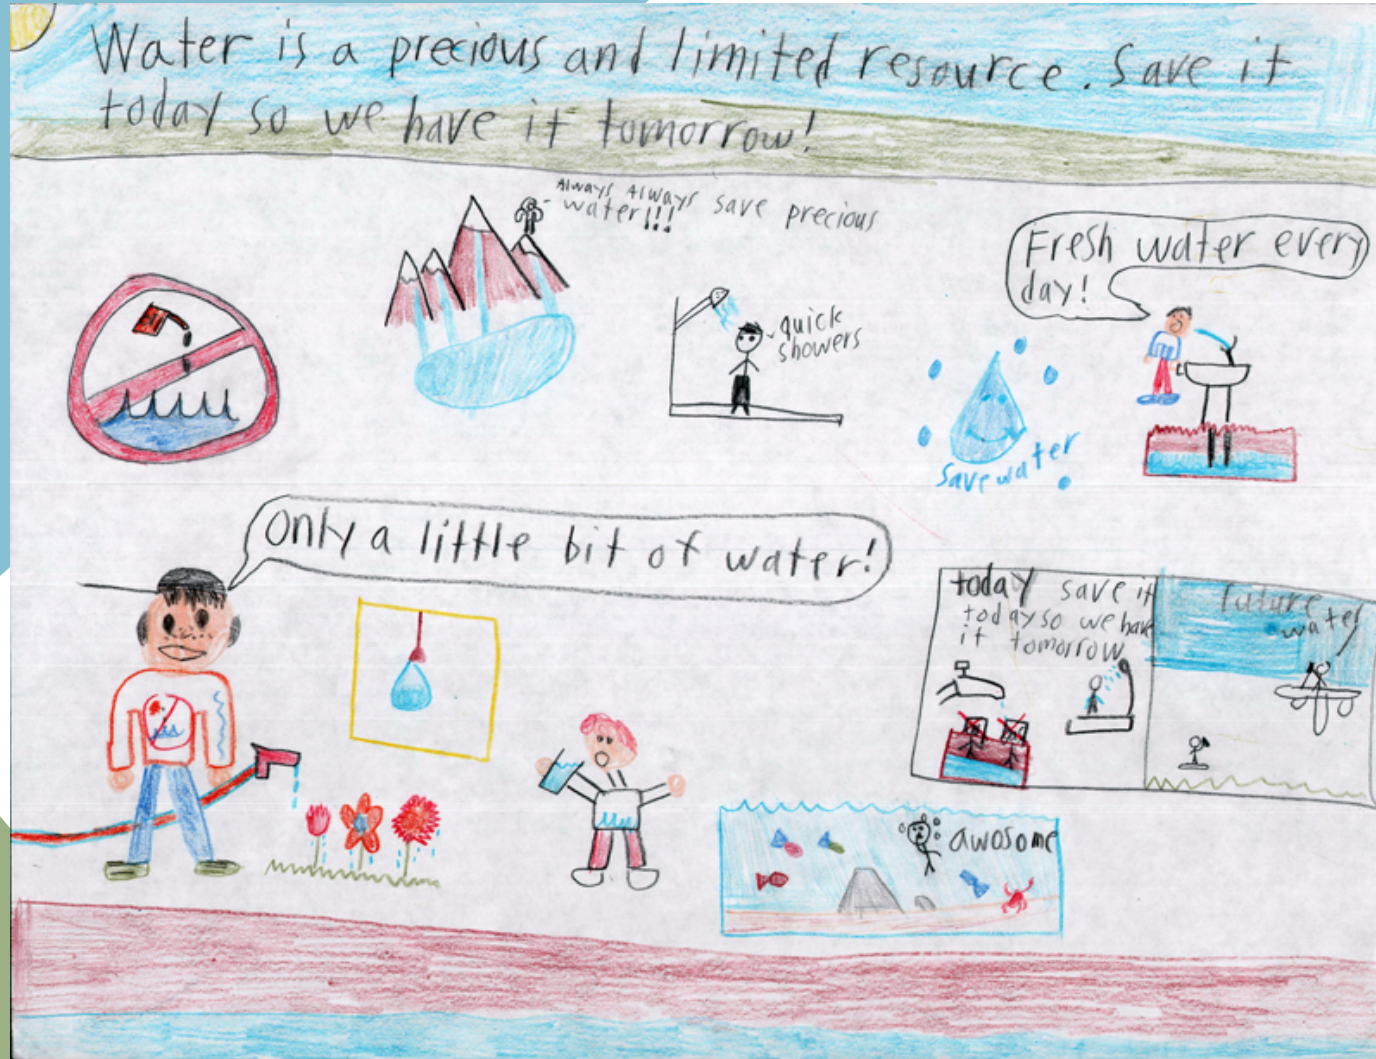 Water is a precious and limited resource. Save it
today so we have it tomorrow!
Always Always save precious
water!!!
quick
showers
Fresh water every
day!
Save water
Only a little bit of water!
today save it
today so we have
it tomorrow
future
water
awosome